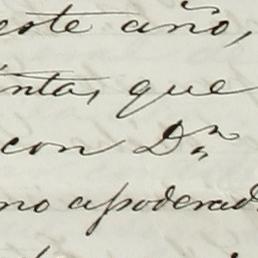 este año,
que
con Dn
no apoderad